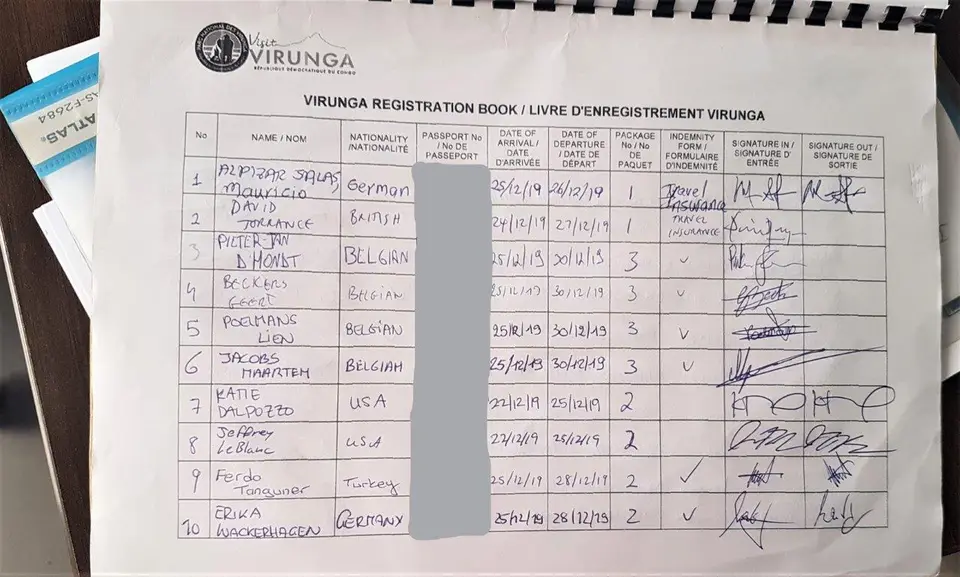 PARC NATIONAL DES VIRUNGA
Visit
VIRUNGA
RÉPUBLIQUE DÉMOCRATIQUE DU CONGO
AS-F2684
ATLAS®
VIRUNGA REGISTRATION BOOK / LIVRE D'ENREGISTREMENT VIRUNGA
No NAME / NOM NATIONALITY /NATIONALITÉ PASSPORT No / No DE PASSEPORT DATE OF ARRIVAL / DATE D'ARRIVÉE DATE OF DEPARTURE / DATE DE DÉPART PACKAGE No / No DE PAQUET INDEMNITY FORM / FORMULAIRE D'INDEMNITÉ SIGNATURE IN / SIGNATURE D' ENTRÉE SIGNATURE OUT / SIGNATURE DE SORTIE
1 ALPIZAR SALAS Mauricio German 25/12/19 26/12/19 1 Travel Insurance
2 DAVID TORRANCE BRITISH 24/12/19 27/12/19 1 TRAVEL INSURANCE
3 PIETER-JAN D'MONDT BELGIAN 25/12/19 30/12/19 3
4 BECKERS GEERT BELGIAN 25/12/19 30/12/19 3
5 POELMANS LIEN BELGIAN 25/12/19 30/12/19 3
6 JACOBS MAARTEN BELGIAN 25/12/19 30/12/19 3
7 KATIE DALPOZZO USA 22/12/19 25/12/19 2
8 Jeffrey LeBlanc USA 22/12/19 25/12/19 2
9 Ferdo Tanguner Turkey 25/12/19 28/12/19 2
10 ERIKA WACKERHAGEN GERMANY 25/12/19 28/12/19 2